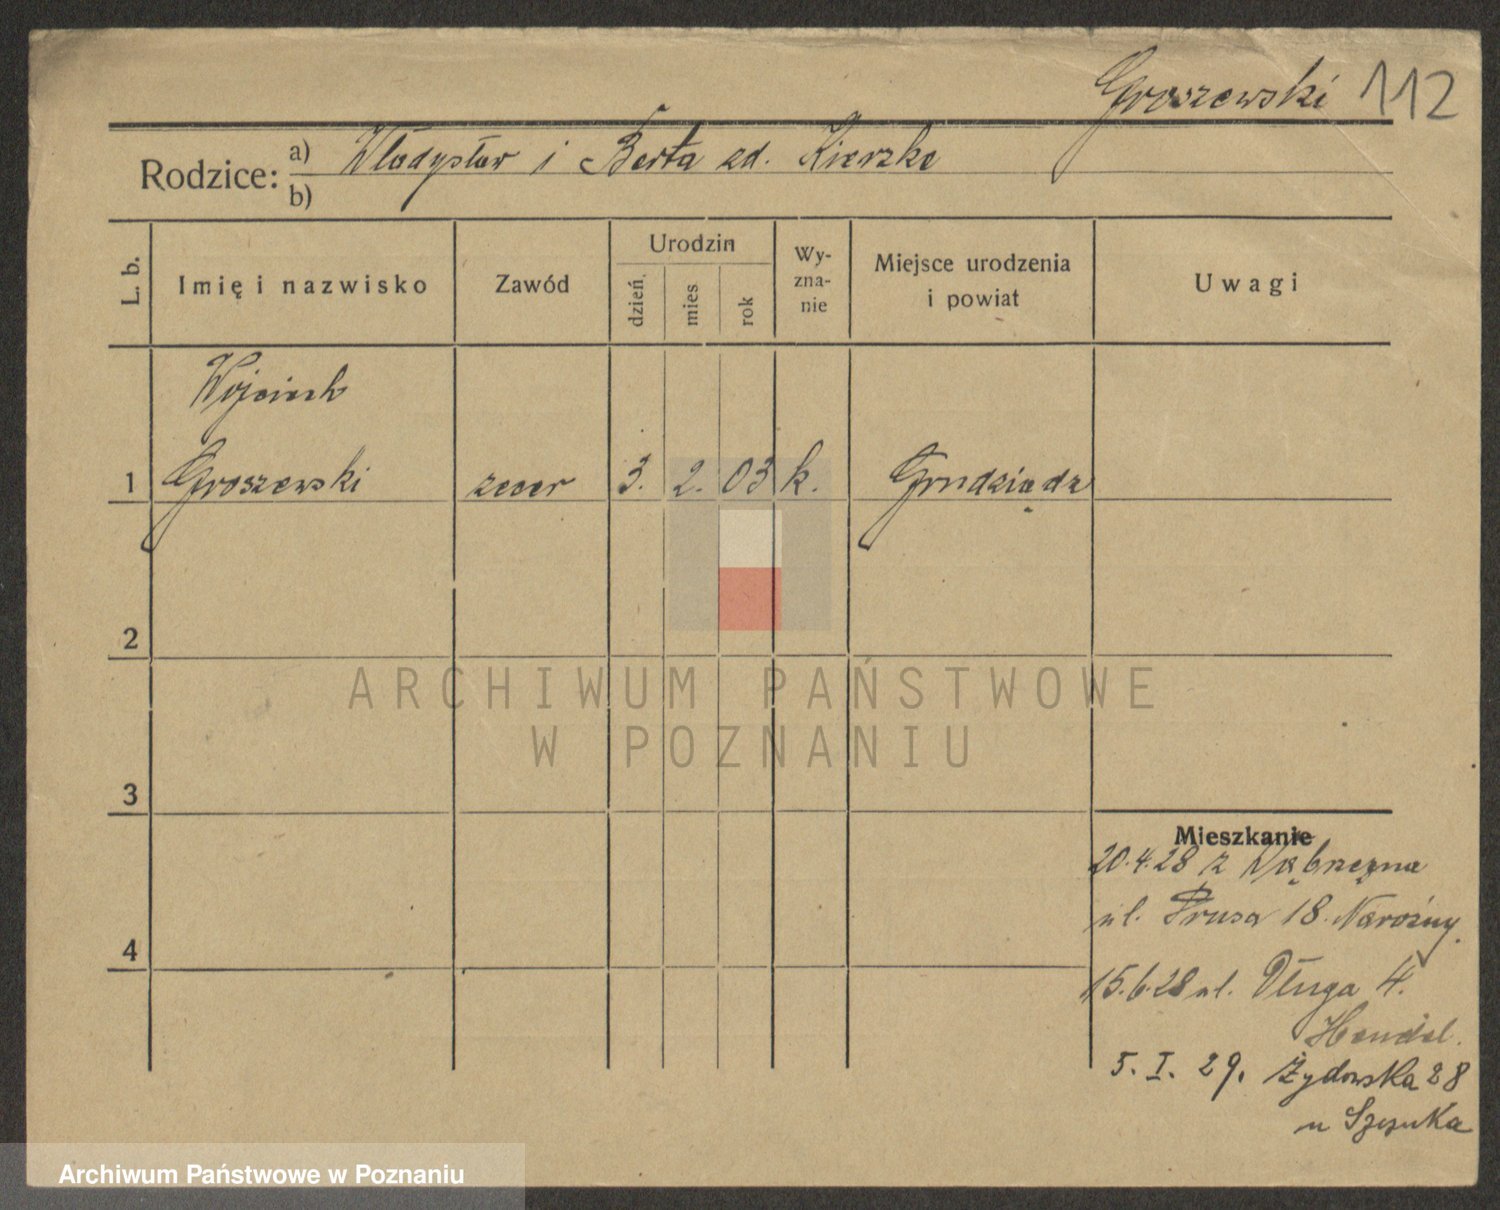 Groszewski 112
Rodzice: a) Władysław i Berta zd. Kierzke
b)
L. b. Imię i nazwisko Zawód Urodzin dzień. mies rok Wy-zna-nie Miejsce urodzenia i powiat Uwagi
Wojciech
1 Groszewski zecer 3. 2. 03 k. Grudziądz
2
ARCHIWUM PAŃSTWOWE
W POZNANIU
3
Mieszkanie
20.4.28 z Wąbrzeźna
ul. Prusa 18. Narożny.
4
15.6.28 ul. Długa 4.
Hendel.
5. I. 29. Żydowska 28
u
Archiwum Państwowe w Poznaniu